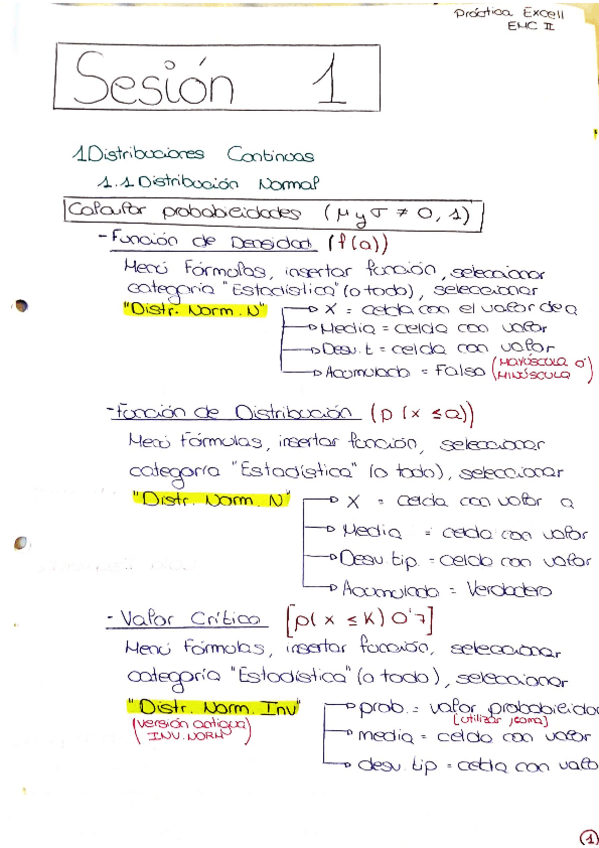 Práctica Excell
EMC II
Sesión 1
1 Distribuciones Continuas
1.1 Distribución Normal
Calcular probabilidades (μ y σ ≠ 0, 1)
- Función de Densidad (f(a))
Menú Fórmulas, insertar función, seleccionar
categoría "Estadística" (o todo), seleccionar
"Distr. Norm. N" → X = celda con el valor de a
→ Media = celda con valor
→ Desv. t = celda con valor
→ Acumulado = Falso (MAYÚSCULA O
MINÚSCULA)
- Función de Distribución (p (x ≤ a))
Menú Fórmulas, insertar función, seleccionar
categoría "Estadística" (o todo), seleccionar
"Distr. Norm. N" → X = celda con valor a
→ Media = celda con valor
→ Desv. tip. = celda con valor
→ Acumulado = Verdadero
- Valor Crítico [p(x ≤ K) 0'7]
Menú Fórmulas, insertar función, seleccionar
categoría "Estadística" (o todo), seleccionar
"Distr. Norm. Inv" → prob. = valor probabilidad
(versión antigua) [utilizar , coma]
INV. NORM → media = celda con valor
→ desv. tip = celda con valo
1